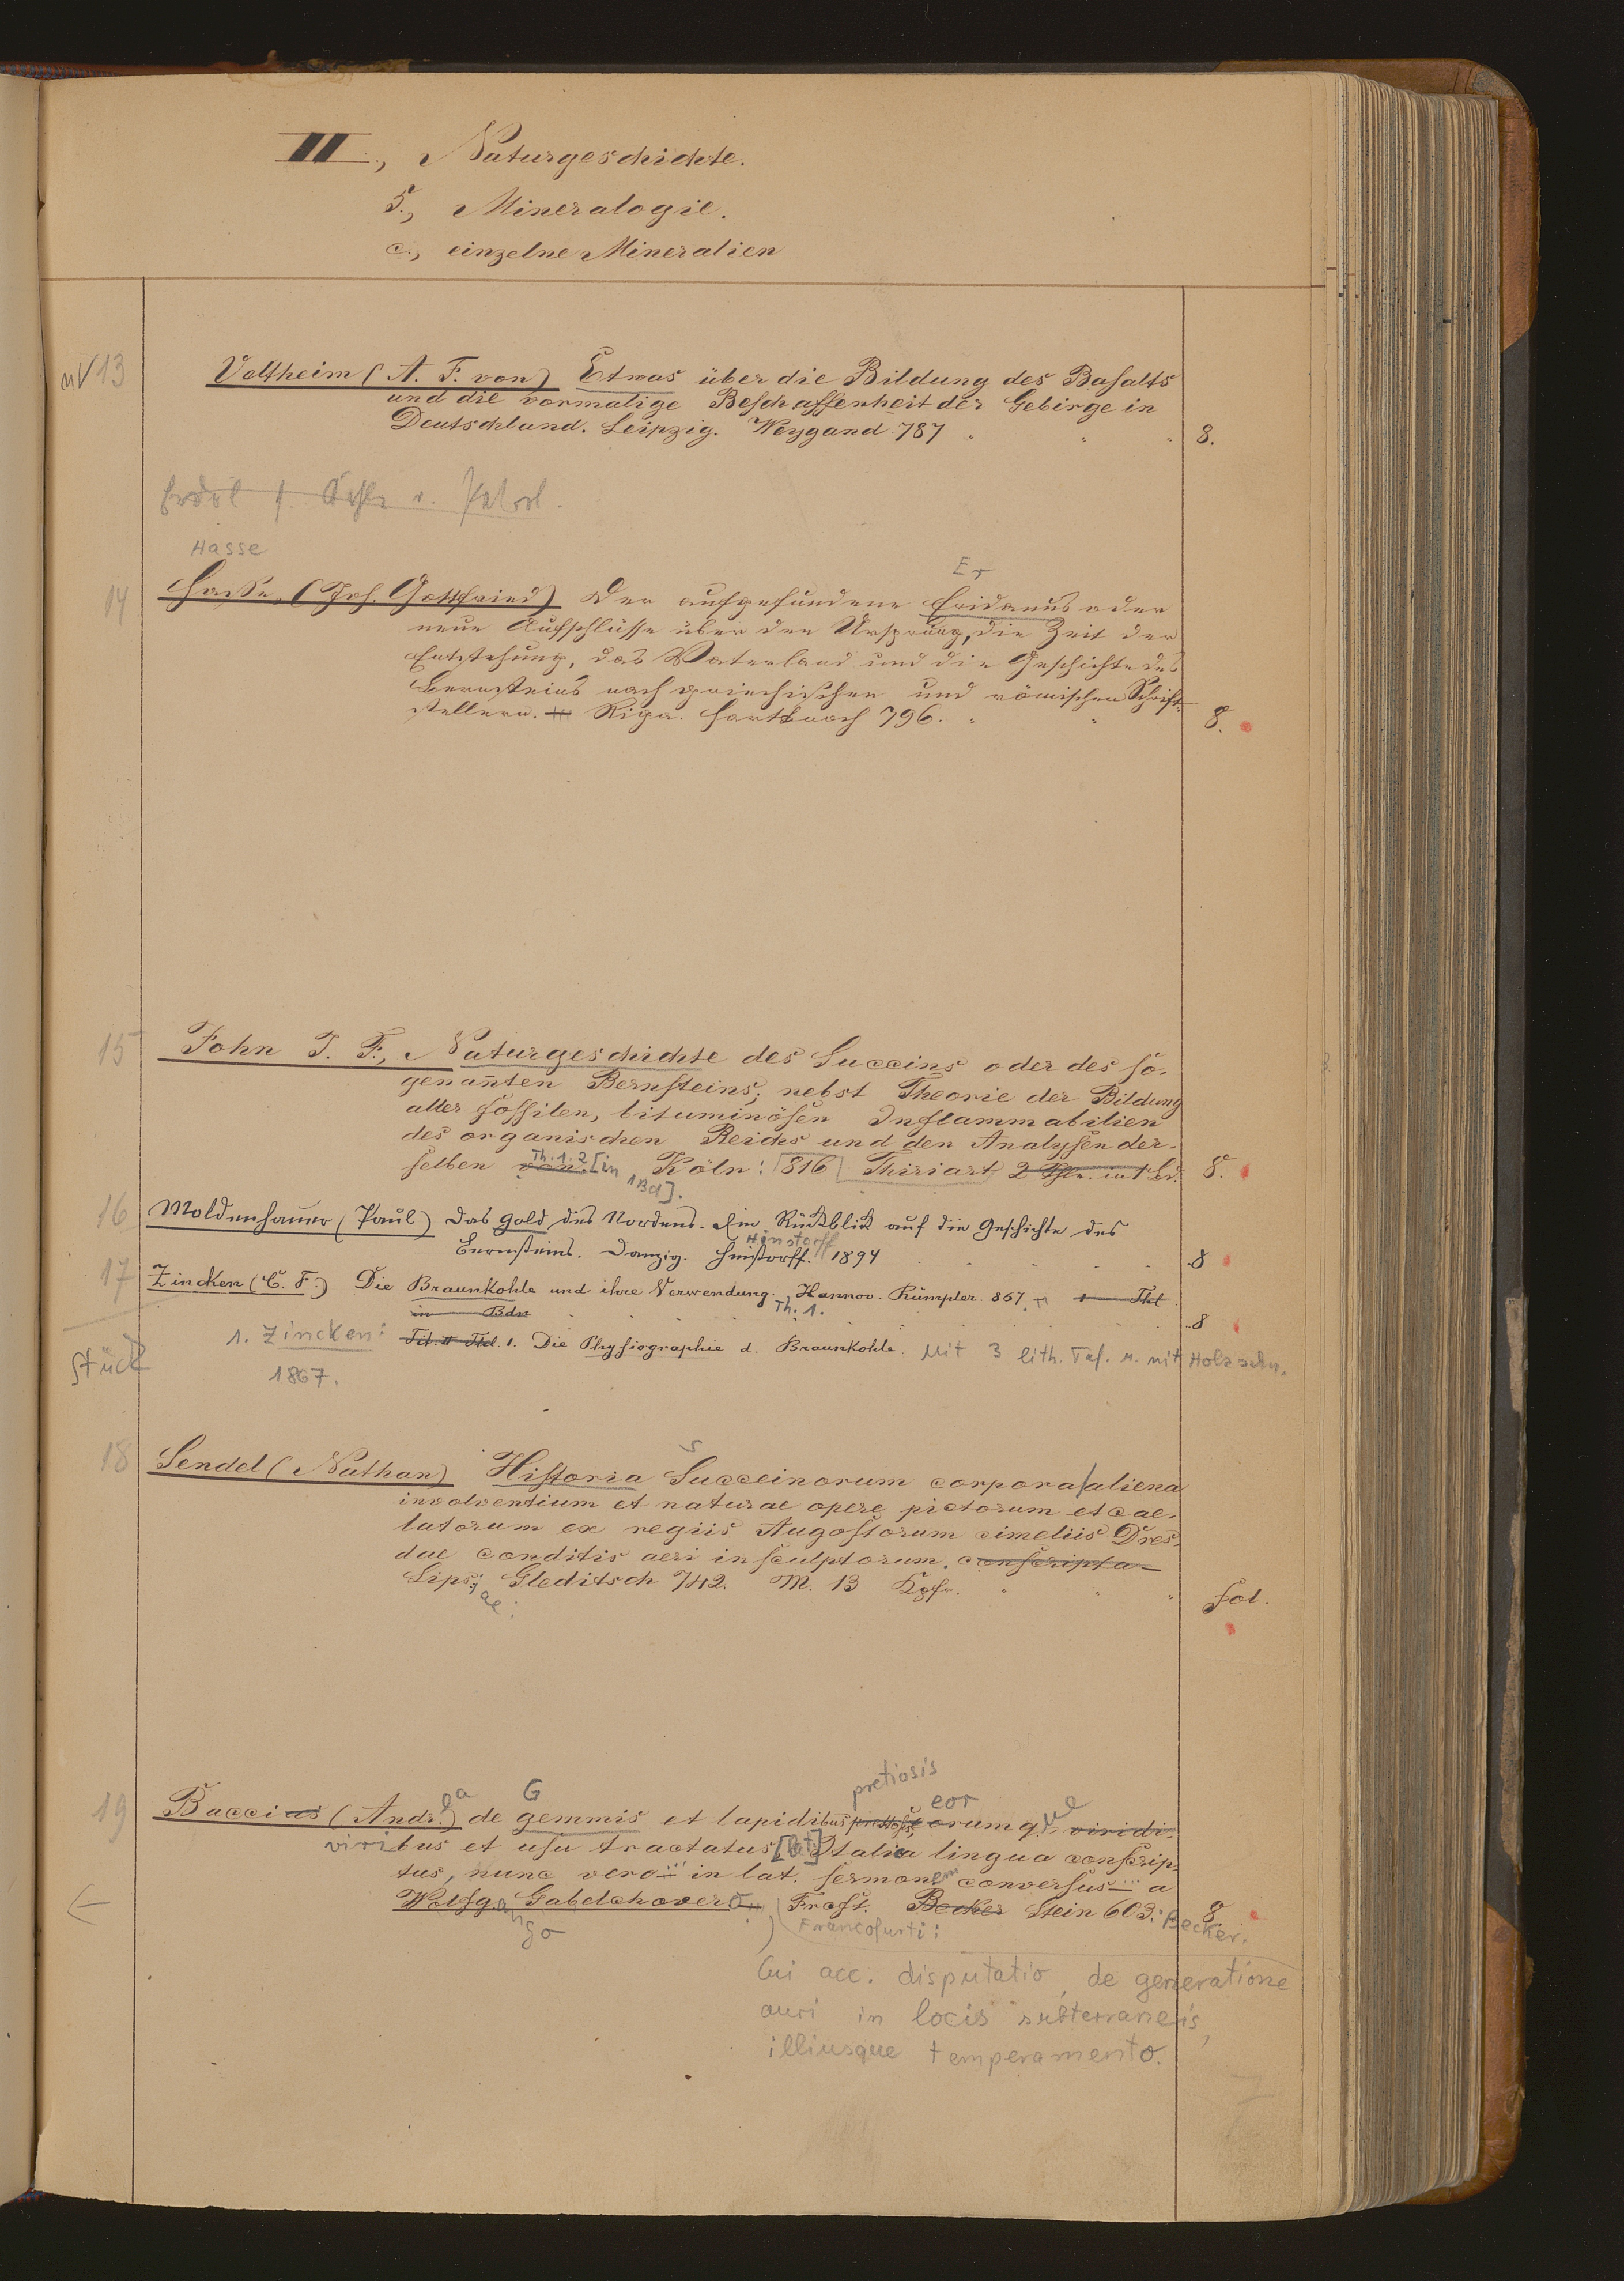 II., Naturgeschichte.
5., Mineralogie.
c., einzelne Mineralien
nV 13 Veltheim (A. F. von) Etwas über die Bildung des Basalts
und die vormalige Beschaffenheit der Gebirge in
Deutschland. Leipzig. Weygand 787 8.
Erdöl s. Kohle u. Petrol.
Hasse
Er
14 Hasse, (Joh. Gottfried) Der aufgefundene Eridanus oder
neue Aufschlüsse über den Ursprung, die Zeit der
Entstehung, das Vaterland und die Geschichte des
Bernsteins nach griechischen und römischen Schrift-
stellern. Riga. Hartknoch 796. 8.
15 John J. F., Naturgeschichte des Succins oder des so-
genan̄ten Bernsteins; nebst Theorie der Bildung
aller fossilen, bituminösen Inflammabilien
des organischen Reichs und den Analysen der-
selben Th. 1. 2 [in 1 Bd]. Köln: 816 Thiriart 2 Thle. in 1 Bd. 8.
16 Moldenhauer (Paul) Das Gold des Nordens. Ein Rückblick auf die Geschichte des
Hinstorff
Bernsteins. Danzig. Hinstorff. 1894 8
17 Zincken (C. F.) Die Braunkohle und ihre Verwendung. Hannov. Rümpler. 867. 1 Thl
in Bdn Th. 1. 8
1. Zincken: Tit. Thl. 1. Die Physiographie d. Braunkohle. Mit 3 lith. Taf. u. mit Holzschn.
Stück 1867.
18 Sendel (Nathan) Historia Succinorum corpora aliena
involventium et naturae opere pictorum et cae-
latorum ex regiis Augostorum cimeliis Dres-
dae conditis aeri insculptorum. conscripta
Lips. Gleditsch 742. M. 13 Kpfr. Fol.
ae:
pretiosis
ea G eor ue
19 Baccius (Andr.) de gemmis et lapidibus pretiosis, eorumq. viridi-
viribus et usu tractatus [lat.] Italica lingua conscrip-
tus, nunc vero in lat. sermonem conversus a
Wolfg. Gabelchovero Frcft. Becker Stein 603. Becker. 8.
ango Francofurti:
Cui acc. disputatio, de generatione
auri in locis subterraneis,
illiusque temperamento.